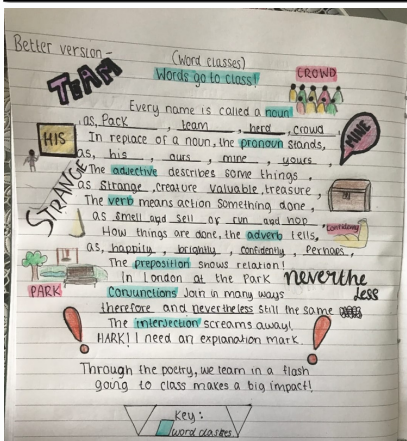 Better version -
(Word classes)
Words go to class!
TEAM
CROWD
Every name is called a noun
as, Pack, team, herd, crowd
HIS
MINE
In replace of a noun, the pronoun stands,
as, his, ours, mine, yours,
The adjective describes some things,
STRANGE
as strange, creature valuable, treasure,
The verb means action something done,
as smell and sell or run and hop
How things are done, the adverb tells,
Confidently
as, happily, brightly, confidently, Perhaps,
The preposition shows relation!
In London at the Park
nevertheless
PARK
Conjunctions Join in many ways
therefore and nevertheless still the same
The interjection screams away!
HARK! I need an explanation mark.
Through the poetry, we team in a flash
going to class makes a big impact!
Key:
word classes